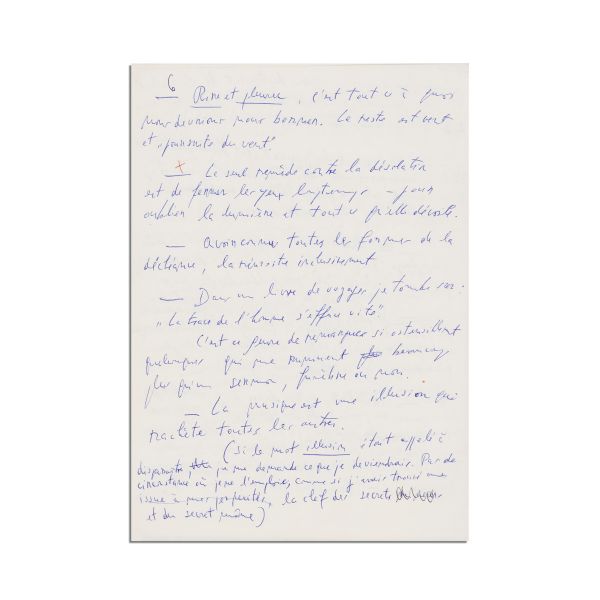 6
— Rire et pleurer, c'est tout ce à quoi
nous devrions nous borner. Le reste est vent
et „poursuite du vent".
x — Le seul remède contre la désolation
est de fermer les yeux longtemps – pour
oublier la lumière et tout ce qu'elle dévoile.
— Avoir connu toutes les formes de la
déchéance, la réussite inclusivement
— Dans un livre de voyages je tombe sur:
„La trace de l'homme s'efface vite".
C'est ce genre de remarques si ostensiblement
quelconques qui me ruminent beaucoup
plus qu'un sermon, funèbre ou non.
— La musique est une illusion qui
rachète toutes les autres.
(Si le mot illusion était appelé à
disparaître, je me demande ce que je deviendrais. Pas de
circonstance où je ne l'emploie, comme si j'avais trouvé une
issue à mes perplexités, la clef des secrets
et du secret même)